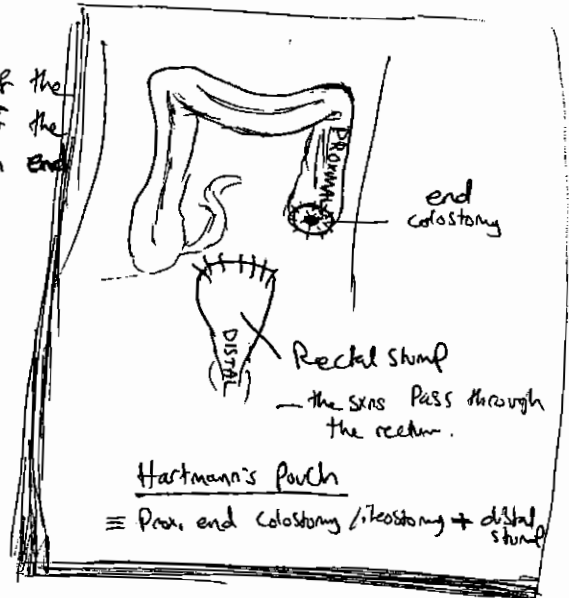 f the
f the
End
PROXIMAL
end
colostomy
DISTAL
Rectal stump
— the sxns Pass through
the rectum.
Hartmann's Pouch
≡ Prox. end colostomy / ileostomy + distal
stump